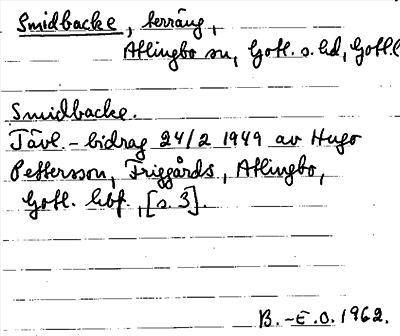 Smidbacke, terräng,
Atlingbo sn, Gotl. s. hd, Gotl. l
Smidbacke.
Tävl.-bidrag 24/2 1949 av Hugo
Pettersson, Friggårds, Atlingbo,
Gotl. hbf., [s. 3].
B.-E.O. 1962.